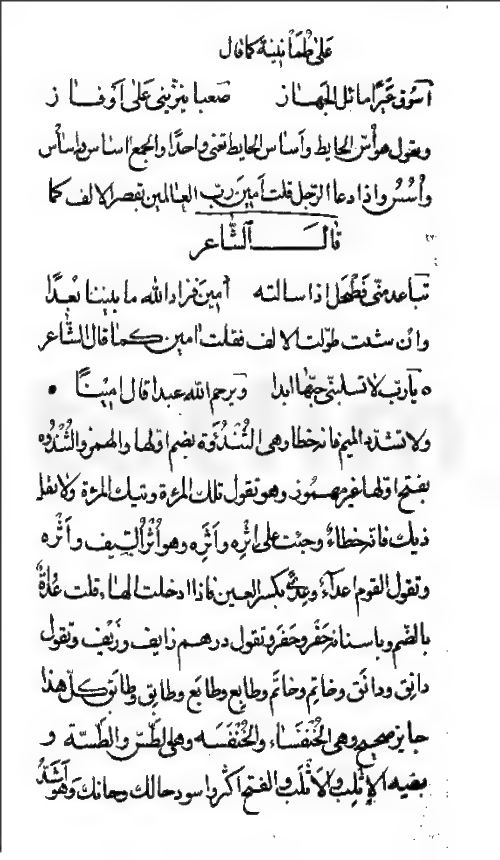 على طمأنينة كما قال
أسوق عيرا مائل الجهاز صعبا ينزيني على أوفاز
وتقول هو أسّ الحايط وأساس الحايط تعنى واحدًا والجمع اساس وإساس
وأُسُس واذا دعا الرجل قلت أمين رب العالمين بقصر الالف كما
قال الشاعر
تباعد منّي فطحل اذ اسالته أمين فزاد الله ما بيننا بُعدًا
وان شئت طولت الالف فقلت امين كما قال الشاعر
يا ربّ لا تسلبنّي حبّها ابدا ويرحم الله عبدا قال امينًا
ولا تشدد الميم فانه خطا وهي الثُّنْدُؤَة بضم اوّلها والهمز والثَّنْدُوه
بفتح اوّلها غير مهموز وهو تقول تلك المرءة وتيك المرءة ولا تقل
ذيك فانّه خطاءٌ وجئت على إثْرِه وأَثَرِه وهو أُثْرُ السّيف وأَثْره
وتقول القوم اعداءٌ وعِدًى بكسر العين فاذا ادخلت الهاء قلت عُداةٌ
بالضّم وباسنانه حَفْر وحَفَر وتقول درهم زايف وزَيْف وتقول
دانِق ودانَق وخاتِم وخاتَم وطابِع وطابَع وطابِق وطابَق كلّ هذا
جايز صحيح وهي الخُنْفَسَاء والخُنْفَسَه وهي الطّسّ والطّسّة و
بفيه الإثْلِب والأَثْلَب والفتح اكثر واسود حالك وحانك وهو أشَدُّ